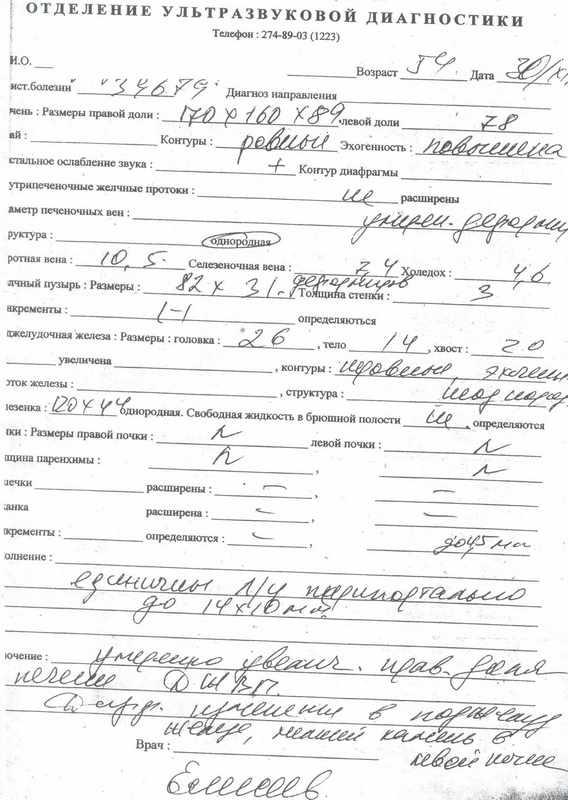 ОТДЕЛЕНИЕ УЛЬТРАЗВУКОВОЙ ДИАГНОСТИКИ
Телефон : 274-89-03 (1223)
И.О. Возраст 54. Дата 30/XI
ист.болезни 34679. Диагноз направления
ечень : Размеры правой доли : 170 х 160 х 89, левой доли 78
ай : Контуры : ровные Эхогенность : повышена
стальное ослабление звука : + Контур диафрагмы
утрипеченочные желчные протоки : не расширены
аметр печеночных вен :
руктура : однородная
ротная вена : 10,5. Селезеночная вена : 7,4 Холедох : 4,6
лчный пузырь : Размеры : 82 х 31. Толщина стенки : 3
нкременты : (-) определяются
джелудочная железа : Размеры : головка : 26, тело 14, хвост : 20
увеличена, контуры :
оток железы : , структура :
лезенка : 120 х 44 однородная. Свободная жидкость в брюшной полости не определяются
чки : Размеры правой почки : N левой почки : N
лщина паренхимы : N , N
шечки расширены : – , –
ханка расширена : – , –
нкременты : определяются : – , до 4,5 мм
полнение :
единичны л/у перипортально
до 14х10 мм
лючение : умеренно увелич. прав. доля
печени ДЖВП.
Дифф. изменения в поджелуд
железе, мелкий камень в
левой почке
Врач :